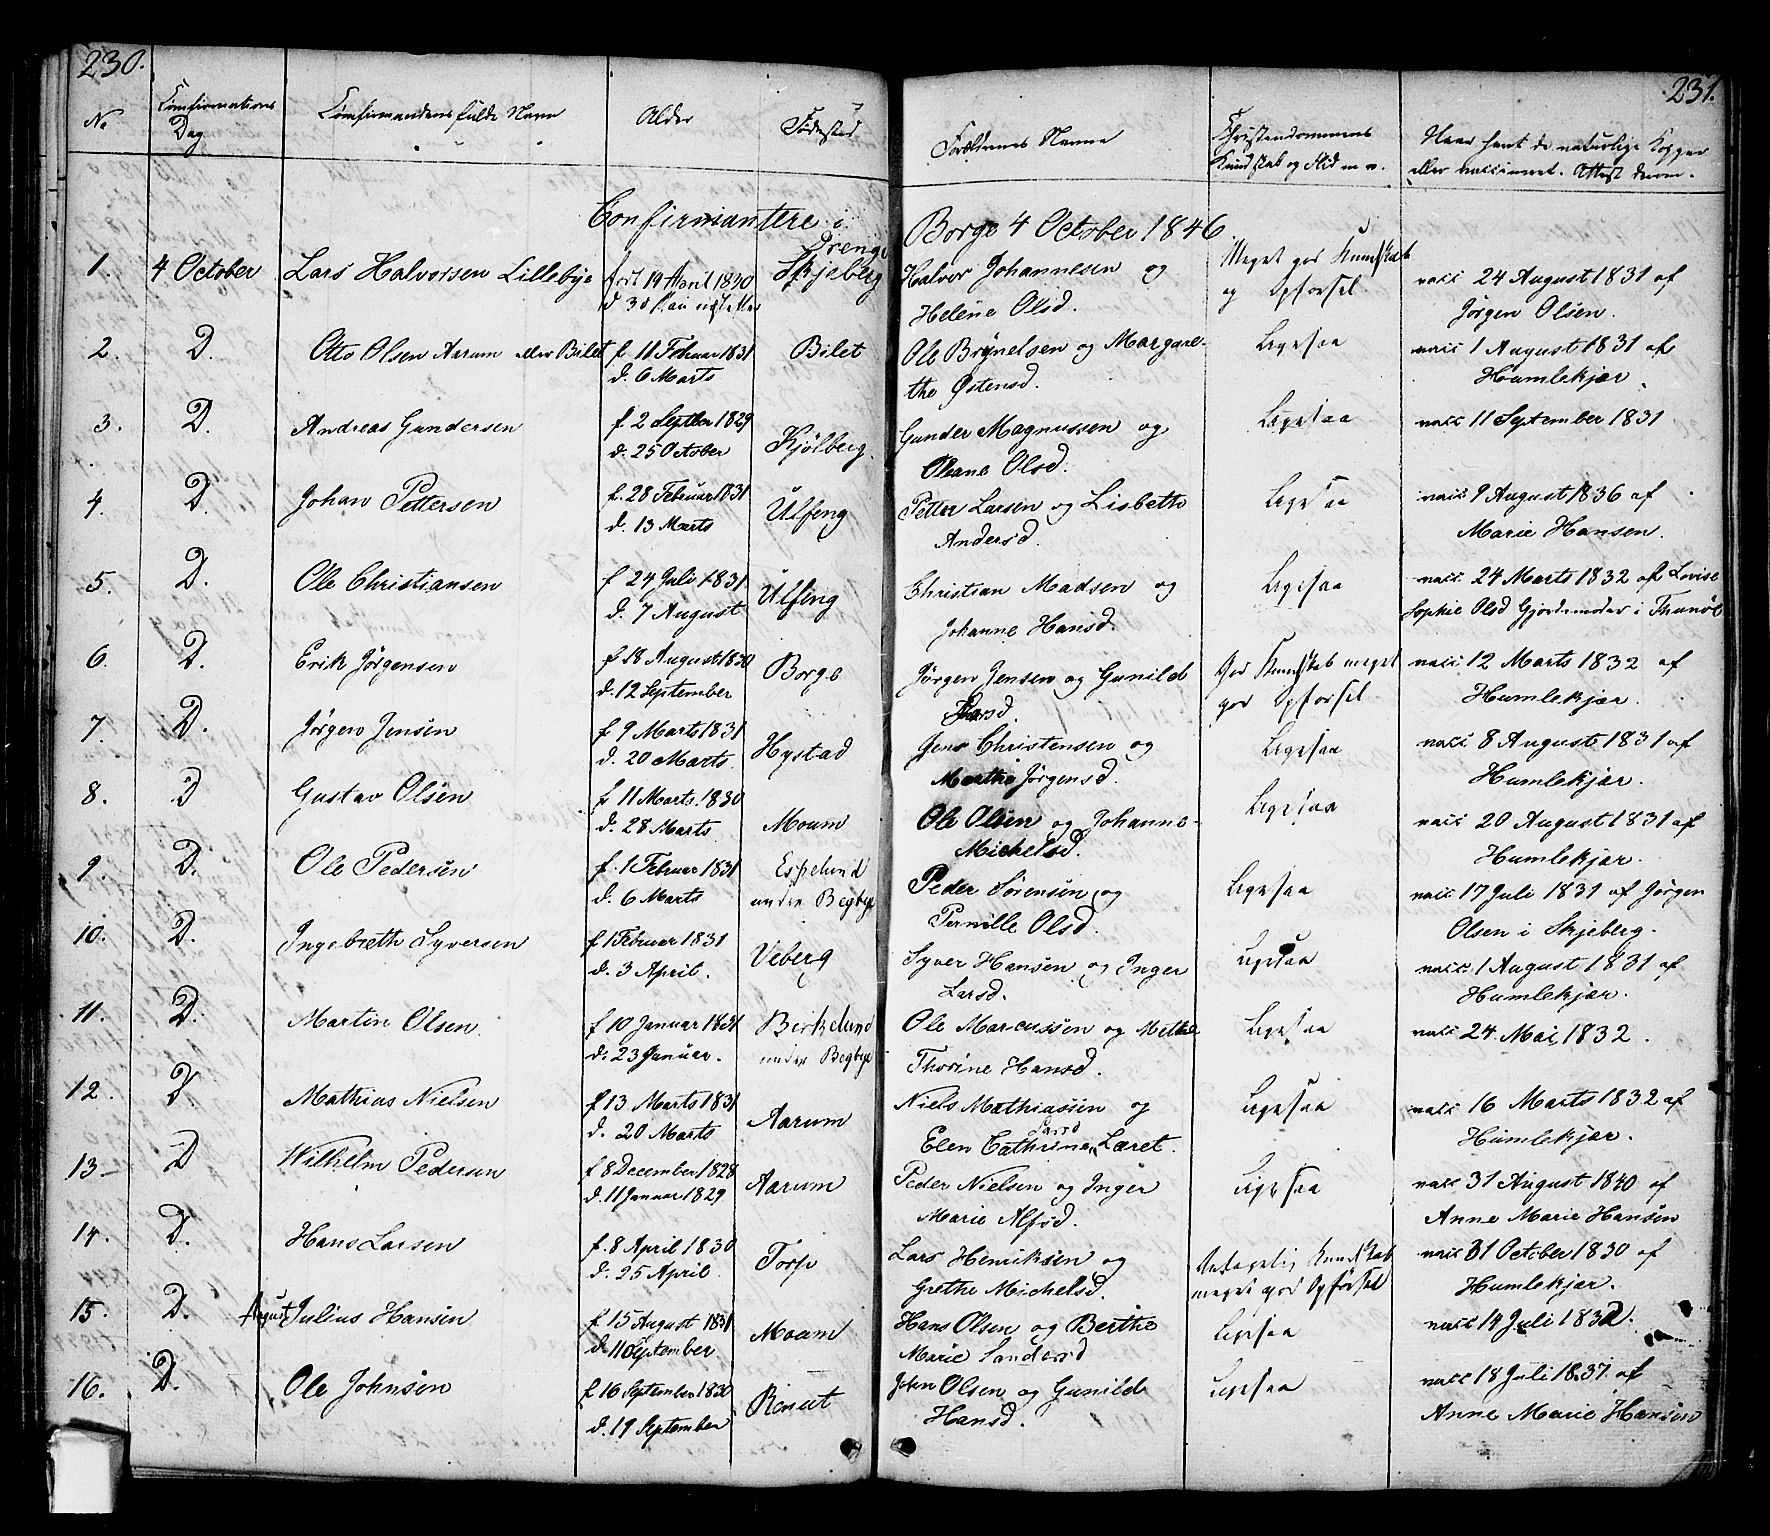 230.
No
Confirmations
Dag
Confirmandens fulde Navn
Alder
Fødested
Confirmantere i
Drenge
1. 4 October Lars Halvorsen Lillebye født 19 April 1830 Skjeberg
d 30 Mai
2. D. Otto Olsen Aarum eller Bilet f. 11 Februar 1831 Bilet
d. 6 Marts
3. D. Andreas Gundersen f. 2 Septber 1829 Kjølberg
d. 25 October
4. D. Johan Pettersen f. 28 Februar 1831 Ulfeng
d. 13 Marts
5. D. Ole Christiansen f. 24 Juli 1831 Ulfeng
d. 7 August
6. D. Erik Jørgensen f. 18 August 1830 Borge
d. 12 September
7. D. Jørgen Jensen f. 9 Marts 1831 Hystad
d. 20 Marts
8. D Gustav Olsen f. 11 Marts 1830 Moum
d. 28 Marts
9. D. Ole Pedersen f. 1 Februar 1831 Espelund
d. 6 Marts under Begbye
10. D. Ingebreth Syversen f. 1 Februar 1831 Veberg
d. 3 April.
11. D. Martin Olsen f. 10 Januar 1831 Berkelund
d. 23 Januar. under Begbye
12. D. Mathias Nielsen f. 13 Marts 1831 Aarum
d. 20 Marts
13 D Wilhelm Pedersen f. 8 December 1828 Aarum
d. 11 Januar 1829
14. D. Hans Larsen f. 8 April 1830 Torp
d. 25 April.
15. D. August Julius Hansen f. 15 August 1831 Moum
d. 11 September
16. D. Ole Johnsen f. 16 September 1830
d. 19 September
231.
Forældrenes Navne
Christendommens
Kundskab og Flid m v.
Naar havt de naturlige Kopper
eller vaccineret. Attest derom.
Borge 4 October 1846.
Halvor Johannesen og Meget god Kundskab vacc 24 August 1831 af
Helene Olsd. og Opførsel Jørgen Olsen.
Ole Brynelsen og Margare- Ligesaa vacc 1 August 1831 af
the Østensd. Humlekjær.
Gunder Magnussen og Ligesaa vacc 11 September 1831
Oleane Olsd.
Petter Larsen og Lisbeth Ligesaa vacc 9 August 1836 af
Andersd. Marie Hansen.
Christian Madsen og Ligesaa vacc 24 Marts 1832 af Lovise
Johanne Hansd. Sophie Olsd Gjordemoder i Thunø
Jørgen Jensen og Gunild God Kundskab meget vacc 12 Marts 1832 af
Larsd. god Opførsel Humlekjær.
Jens Christensen og Ligesaa vacc 8 August 1831 af
Marthe Jørgensd. Humlekjær.
Ole Olsen og Johanne Ligesaa vacc 20 August 1831 af
Michelsd. Humlekjær.
Peder Sørensen og Ligesaa vacc 17 Juli 1831 af Jørgen
Pernille Olsd. Olsen i Skjeberg.
Syver Hansen og Inger Ligesaa vacc. 1 August 1831 af
Larsd. Humlekjær.
Ole Marcussen og Methe Ligesaa vacc 24 Mai 1832.
Thorine Hansd.
Niels Mathiassen og Ligesaa vacc 16 Marts 1832 af
Elen Cathrine Larsd Læret. Humlekjær.
Peder Nielsen og Inger Ligesaa vacc 31 August 1840 af
Marie Alfsd. Anne Marie Hansen
Lars Henriksen og Antagelig Kundskab vacc 31 October 1830 af
Grethe Michelsd. meget god Opførsel Humlekjær.
Hans Olsen og Berthe Ligesaa vacc 14 Juli 1832.
Marie Sandersd
John Olsen og Gunild Ligesaa vacc 18 Juli 1837. af
Hansd. Anne Marie Hansen